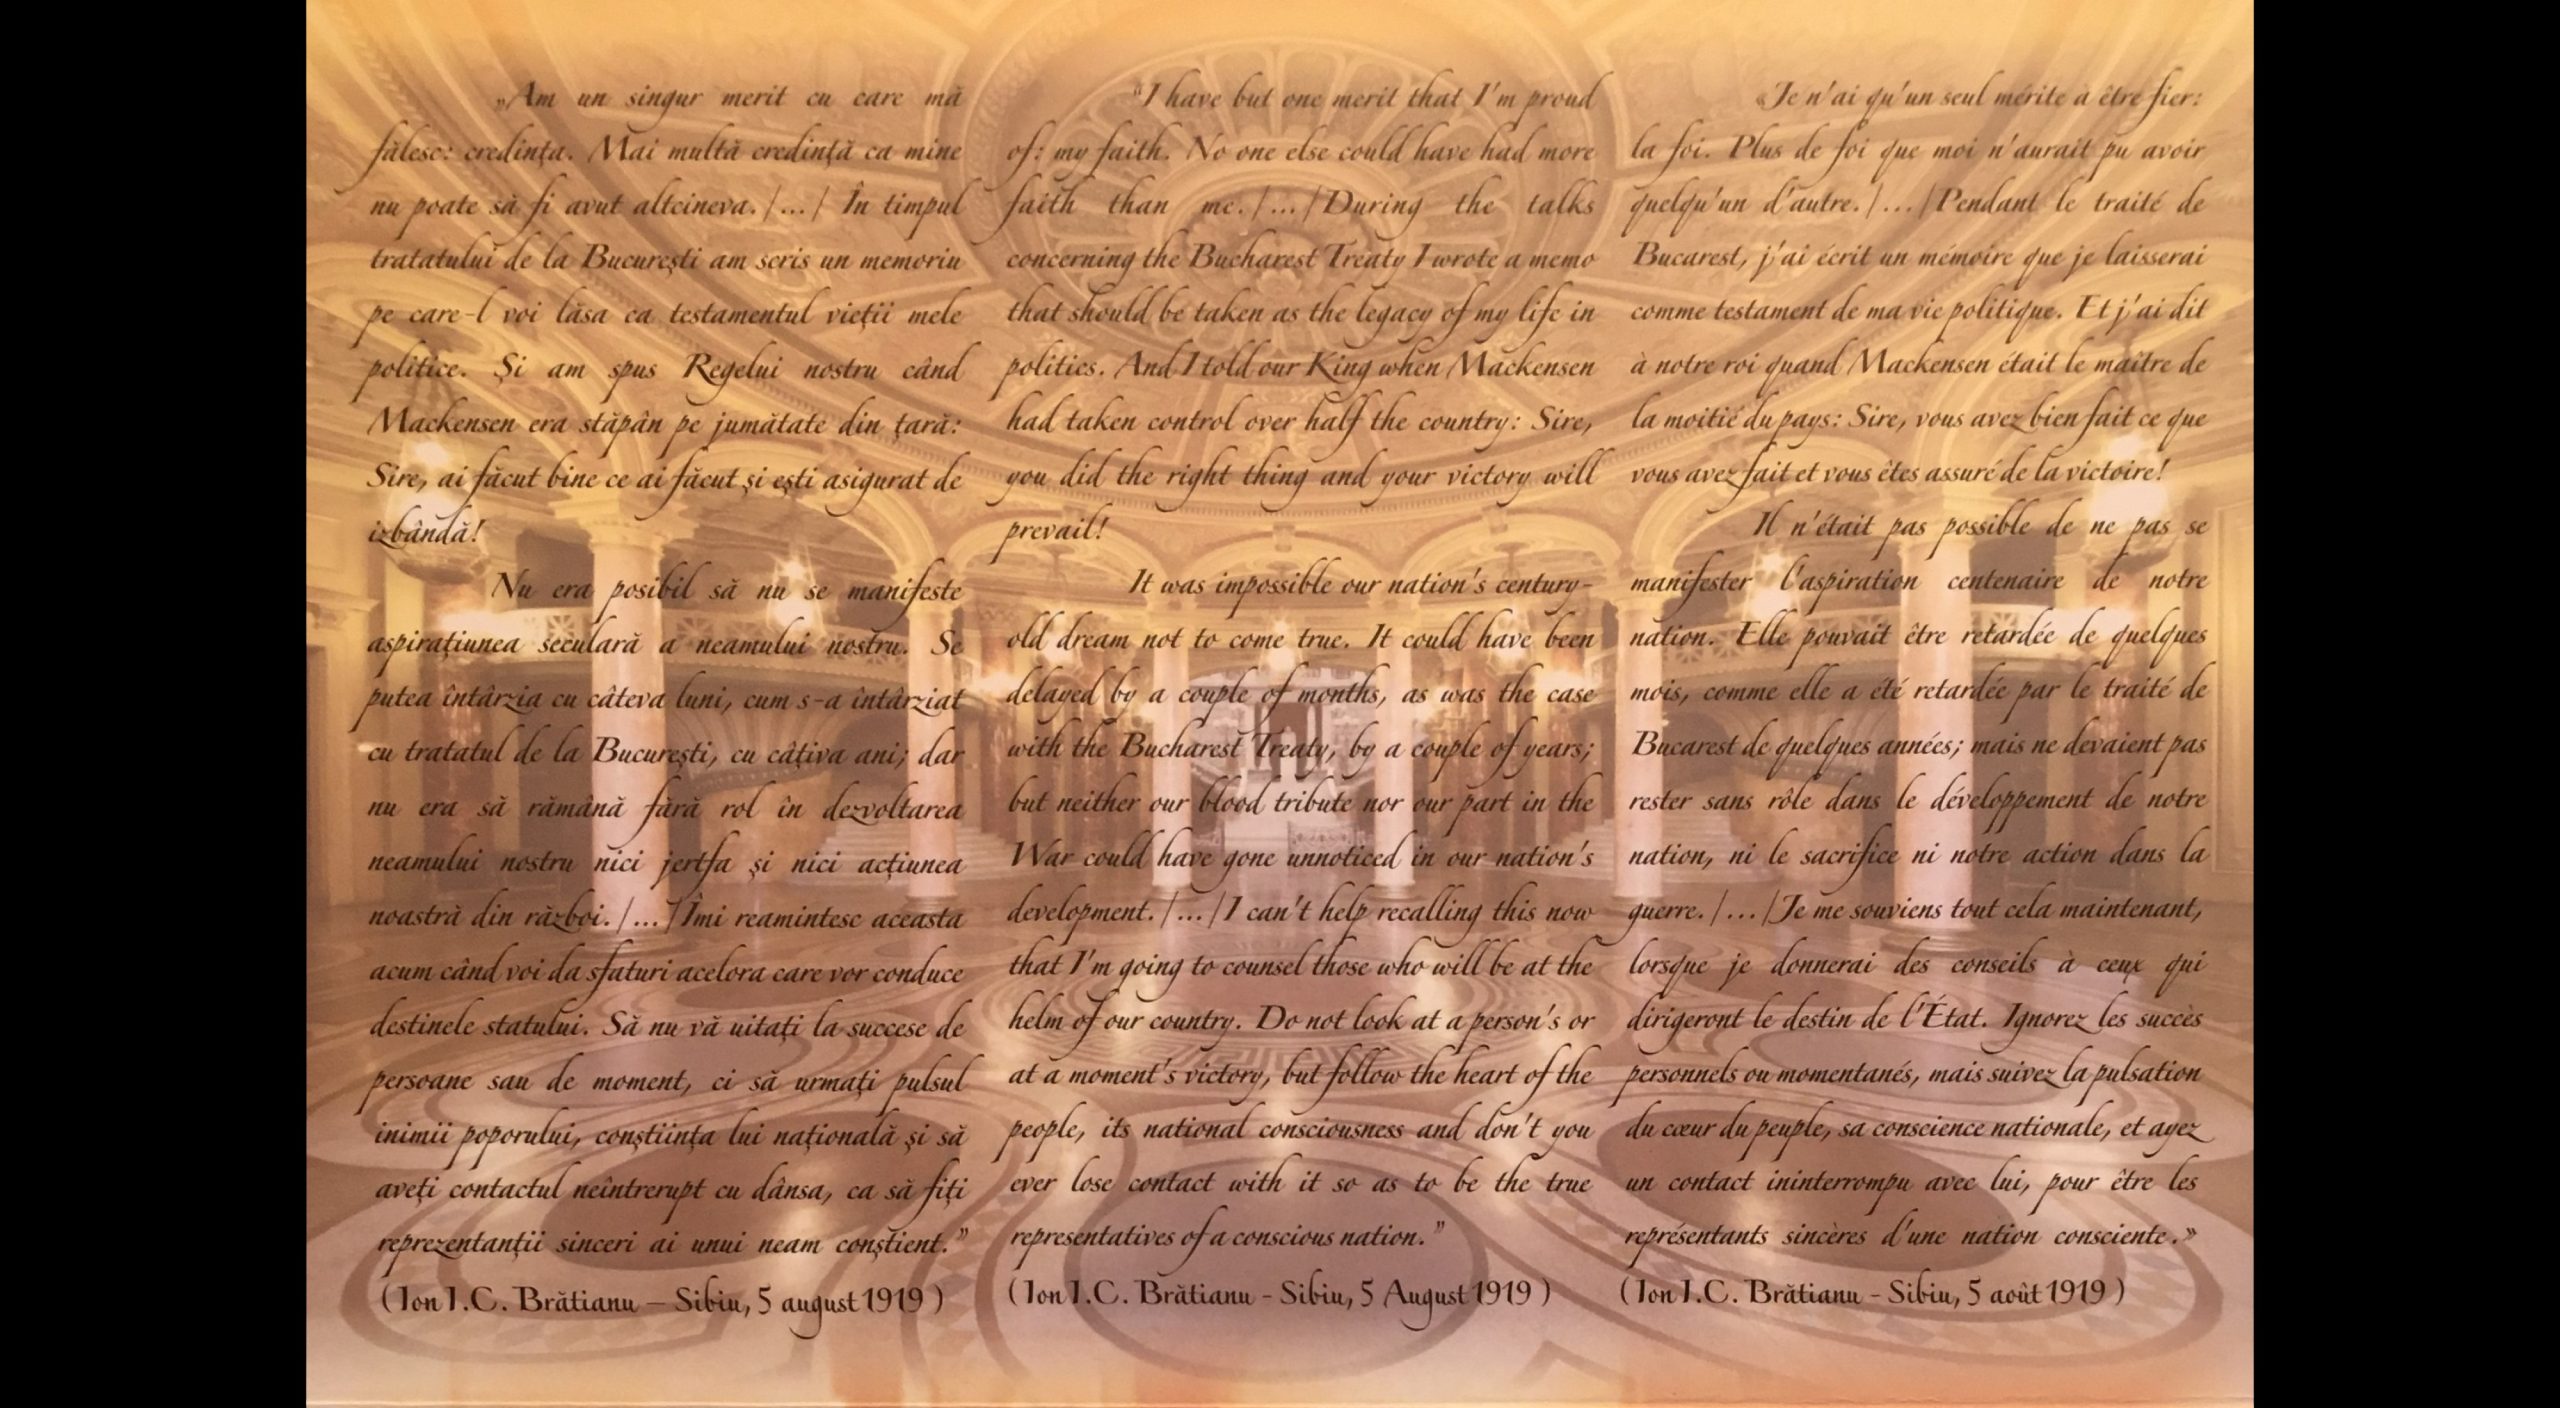 „Am un singur merit cu care mă
fălesc: credința. Mai multă credință ca mine
nu poate să fi avut altcineva./.../ În timpul
tratatului de la București am scris un memoriu
pe care-l voi lăsa ca testamentul vieții mele
politice. Și am spus Regelui nostru când
Mackensen era stăpân pe jumătate din țară:
Sire, ai făcut bine ce ai făcut și ești asigurat de
izbândă!
Nu era posibil să nu se manifeste
aspirațiunea seculară a neamului nostru. Se
putea întârzia cu câteva luni, cum s-a întârziat
cu tratatul de la București, cu câțiva ani; dar
nu era să rămână fără rol în dezvoltarea
neamului nostru nici jertfa și nici acțiunea
noastră din război./.../Îmi reamintesc aceasta
acum când voi da sfaturi acelora care vor conduce
destinele statului. Să nu vă uitați la succese de
persoane sau de moment, ci să urmați pulsul
inimii poporului, conștiința lui națională și să
aveți contactul neîntrerupt cu dânsa, ca să fiți
reprezentanții sinceri ai unui neam conștient.”
(Ion I.C. Brătianu – Sibiu, 5 august 1919)
"I have but one merit that I'm proud
of: my faith. No one else could have had more
faith than me./.../During the talks
concerning the Bucharest Treaty I wrote a memo
that should be taken as the legacy of my life in
politics. And I told our King when Mackensen
had taken control over half the country: Sire,
you did the right thing and your victory will
prevail!
It was impossible our nation's century-
old dream not to come true. It could have been
delayed by a couple of months, as was the case
with the Bucharest Treaty, by a couple of years;
but neither our blood tribute nor our part in the
War could have gone unnoticed in our nation's
development./.../I can't help recalling this now
that I'm going to counsel those who will be at the
helm of our country. Do not look at a person's or
at a moment's victory, but follow the heart of the
people, its national consciousness and don't you
ever lose contact with it so as to be the true
representatives of a conscious nation."
(Ion I.C. Brătianu - Sibiu, 5 August 1919)
«Je n'ai qu'un seul mérite à être fier:
la foi. Plus de foi que moi n'aurait pu avoir
quelqu'un d'autre./.../Pendant le traité de
Bucarest, j'ai écrit un mémoire que je laisserai
comme testament de ma vie politique. Et j'ai dit
à notre roi quand Mackensen était le maître de
la moitié du pays: Sire, vous avez bien fait ce que
vous avez fait et vous êtes assuré de la victoire!
Il n'était pas possible de ne pas se
manifester l'aspiration centenaire de notre
nation. Elle pouvait être retardée de quelques
mois, comme elle a été retardée par le traité de
Bucarest de quelques années; mais ne devaient pas
rester sans rôle dans le développement de notre
nation, ni le sacrifice ni notre action dans la
guerre./.../Je me souviens tout cela maintenant,
lorsque je donnerai des conseils à ceux qui
dirigeront le destin de l'État. Ignorez les succès
personnels ou momentanés, mais suivez la pulsation
du cœur du peuple, sa conscience nationale, et ayez
un contact ininterrompu avec lui, pour être les
représentants sincères d'une nation consciente.»
(Ion I.C. Brătianu - Sibiu, 5 août 1919)